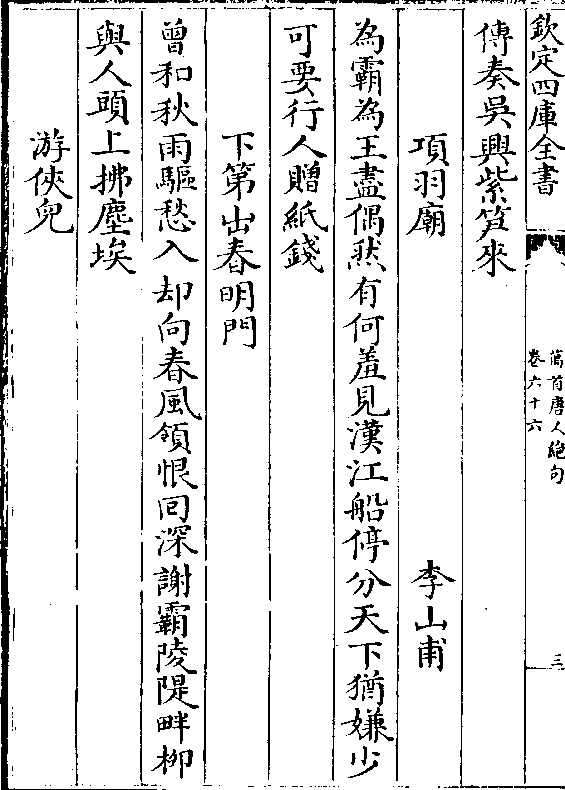 欽定四庫全書
萬首唐人絕句
卷六十六
三
傳奏吳興紫笋來
項羽廟 李山甫
為霸為王盡偶然有何羞見漢江船停分天下猶嫌少
可要行人贈紙錢
下第出春明門
曾和秋雨驅愁入却向春風領恨回深謝霸陵隄畔柳
與人頭上拂塵埃
游俠兒